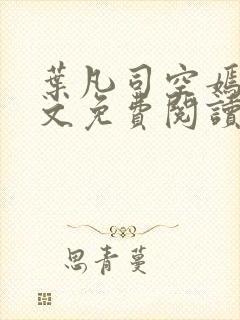 葉凡司空嫣
文免費閱讀
思青蔓